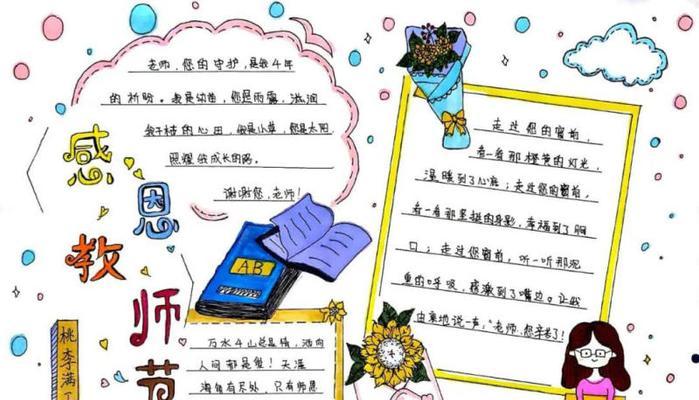 老师,您的守护,是我4年
的祈盼。我是幼苗,您是雨露,滋润
我干枯的心田,我是小草,您是太阳,
照耀我成长的路。
谢谢您,老师!
感恩教师节
桃李满
AB
万水千山总是情,
人间都是爱!天涯
海角有尽处,只有师恩
走过您的窗前,
看一看那橙黄的灯光,
温暖到了心底;走过您的窗前,
看一看那坚挺的身影,幸福到了胸
口;走过您窗前,听一听那沉
重的呼吸,滚到了嘴边。让我
由衷地说一声:"老师,您辛苦了!